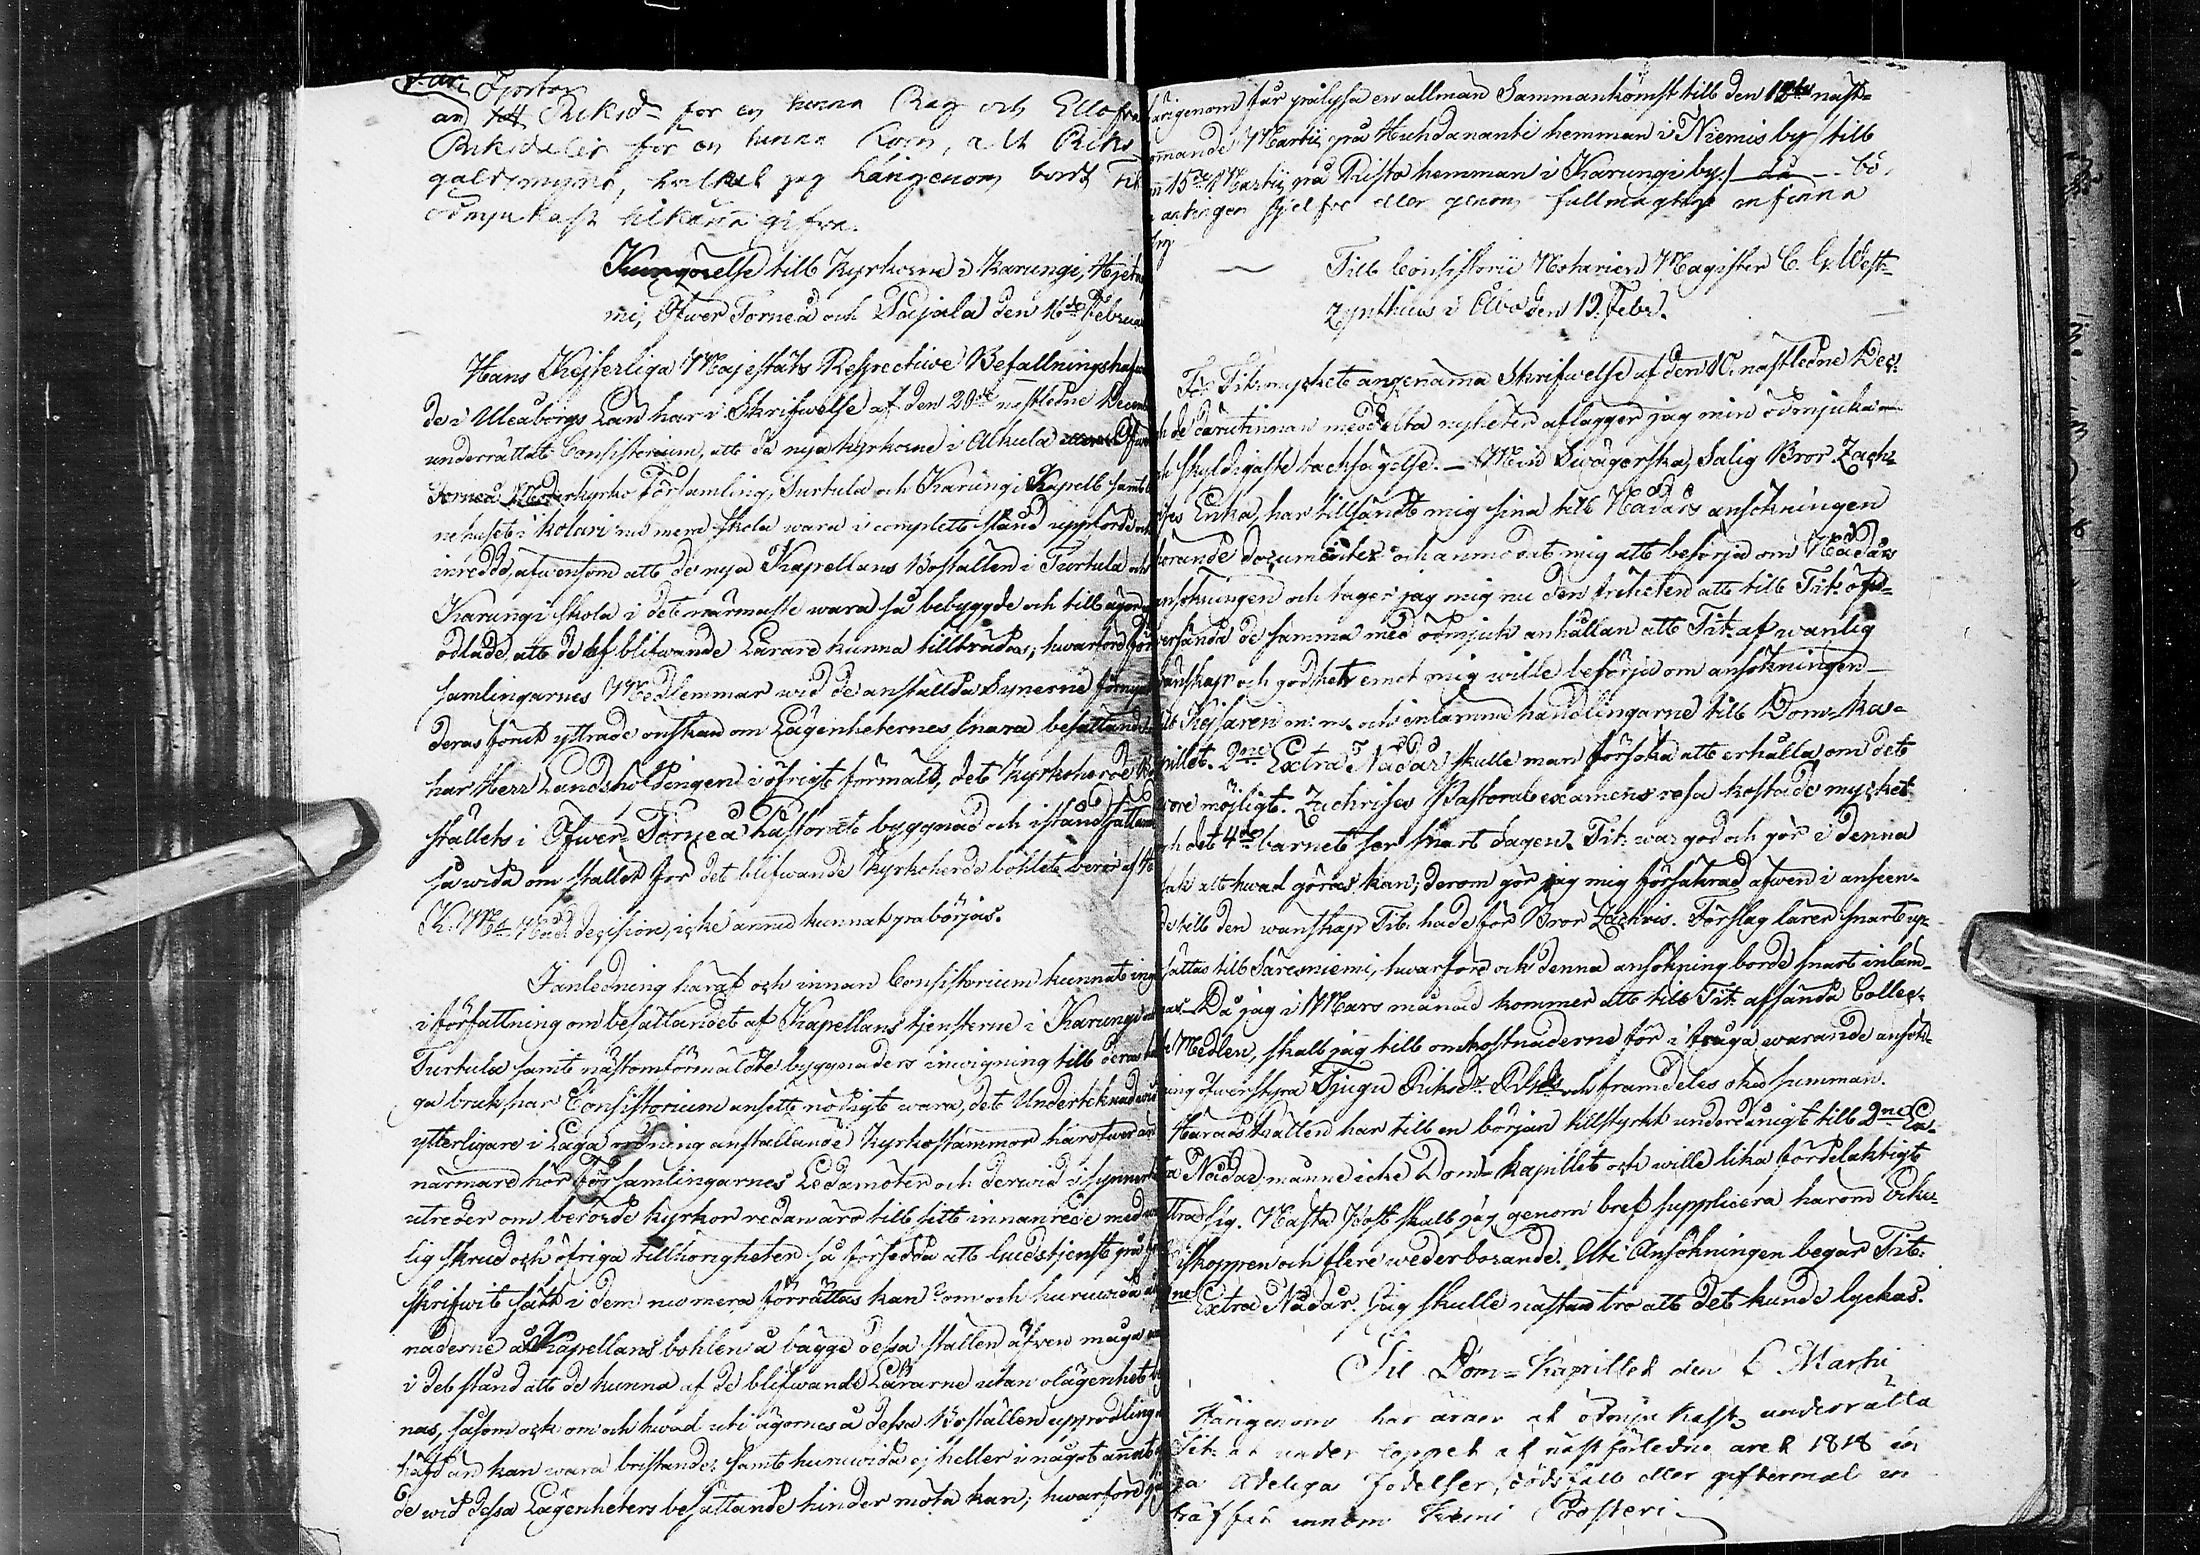 Fjorton
and Riksd=r for en tunna Råg och Ellofva
Riksdaler för en tunna Korn, alt Riks
galdsmynt, hvilket jag härigenom bordt Tit
ödmjukast tilkänna gifva.
Kungörelse till Kyrkorne i Karungi, Hjeta
mi, Öfwer Torneå och Pajala den 16de Februa
Hans Kejserliga Majestäts Respective Befallningshafwan
de i Uleåborgs Län har i Skrifwelse af den 29de nästledne Decem
underrättat Consistorium, att de nya kyrkorne i Alkula Öfwer
Torneå Moderkyrko Församling, Turtula och Karungi Kapell samt bö
nehuset i Kolari nu mera skola wara i complett stånd uppförde och
inredde, äfwensom att de nya Kapellans Boställen i Turtula och
Karungi skola i det närmaste wara så bebyggde och till ägorne
odlade, att de af blifwande Lärare kunna tillträdas; hwarföre för
samlingarnes Medlemmar wid de anställda Synerne förnyat
deras förut yttrade önskan om Lägenheternes snara besättande
har Herr Landshöfdingen i öfrigt förmält, det Kyrkoherde Bo
ställets i Öfwer Torneå Pastorat byggnad och iståndsättande
så wida om stället för det blifwande Kyrkoherde bohlet beror af H.
K. Mts Nåd. decision, icke ännu kunnat påbörjas.
I anledning häraf och innan Consistorium kunnat ingå
i författning om besättandet af Kapellans tjensterne i Karungi och
Turtula samt nästomförmälte byggnaders inwigning till deras
ga bruk, har Consistorium ansett nödigt wara, det Undertecknad wid
ytterligare i Laga ordning anställande Kyrkostämmor häröfwer an
närmare hör Församlingarnes Ledamöter och derwid i synnerhet
utreder om berörde kyrkor redan äro till sitt innanrede med
lig skrud och öfriga tillhörigheter så försedda att Gudstjenst på före
skrifwit sätt i dem nu mera förrättas kan? om och huruwida
naderne å Kapellans bohlen å bägge dessa ställen äfven måga
i det stånd att de kunna af de blifwande Lärarne utan olägenhet
nas, såsom ock om och hwad uti ägornes å dessa Boställen uppodling
häfdan kan wara bristande; samt huruwida ej heller i något annat
de wid dessa Lägenheters besättande hinder möta kan; hwarföre
härigenom får pålysa en allmän Sammankomst till den 13de näst=
kommande Martii på Huhdananti hemman i Niemis by / till
den 15de Martii på Risto hemman i Karungi by / då bö.
antingen sjelfve eller genom fullmägtige infinna
sig.
Till Consistorii Notarien Magister C. G. West=
zynthius i Åbo den 19. Febr.
För Tit: mycket angenäma Skrifwelse af den 10. nästledne Dec:
och de därutinnan meddelta nyheter aflägger jag min ödmjuka
och skyldigaste tacksägelse. — Min Swägerska, Salig Bror Zach=
rises Enka, har tillsändt mig sina till Nådårs ansökningen
hörande documenter och anmodat mig att besörja om Nådårs
ansökningen och tager jag mig nu den friheten att till Tit: öf=
versända de samma med ödmjuk anhållan att Tit: af wanlig
wänskap och godhet emot mig wille besörja om ansökningen
till Kejsaren m: m: och inlämna handlingarne till Dom=Ka=
pitlet. 2ne Extra Nådår skulle man försöka att erhålla om det
wore möjligt. Zachrises Pastoral examens resa kostade mycket
och det 4de barnet ser snart dagen. Tit: war god och gör i denna
sak allt hwad göras kan; derom gör jag mig försäkrad äfwen i anseen=
de till den wänskap Tit: hade för Bror Zachris. Förslag lärer snart up=
sättas till Säresniemi, hwarföre ock denna ansökning borde snart inläm=
nas. Då jag i Mars månad kommer att till Tit: afsända Collec=
te Medlen, skall jag till omkostnaderne för i fråga warande ansök=
ning öfwerstyra Tjugu Riksdr. Rgds och framdeles öka summan.
Häradsrätten har till en början tillstyrkt underdånigt till 2ne Ex=
tra Nådår; månne icke Dom=kapitlet ock wille lika fördelaktigt
yttra sig. Nästa Post skall jag genom bref supplicera härom Erke=
Biskoppen och flere wederborande. Uti Ansökningen begär Tit:
2ne Extra Nådår. Jag skulle nästan tro att det kunde lyckas.
Til Dom=Kapitlet den 6 Martii
Härigenom har äran at ödmjukast underrätta
Tit: at under loppet af nästförledne året 1818 in
ga Adeliga födelser, dödsfall eller giftermål in
träffat innom Kemi Prosteri.